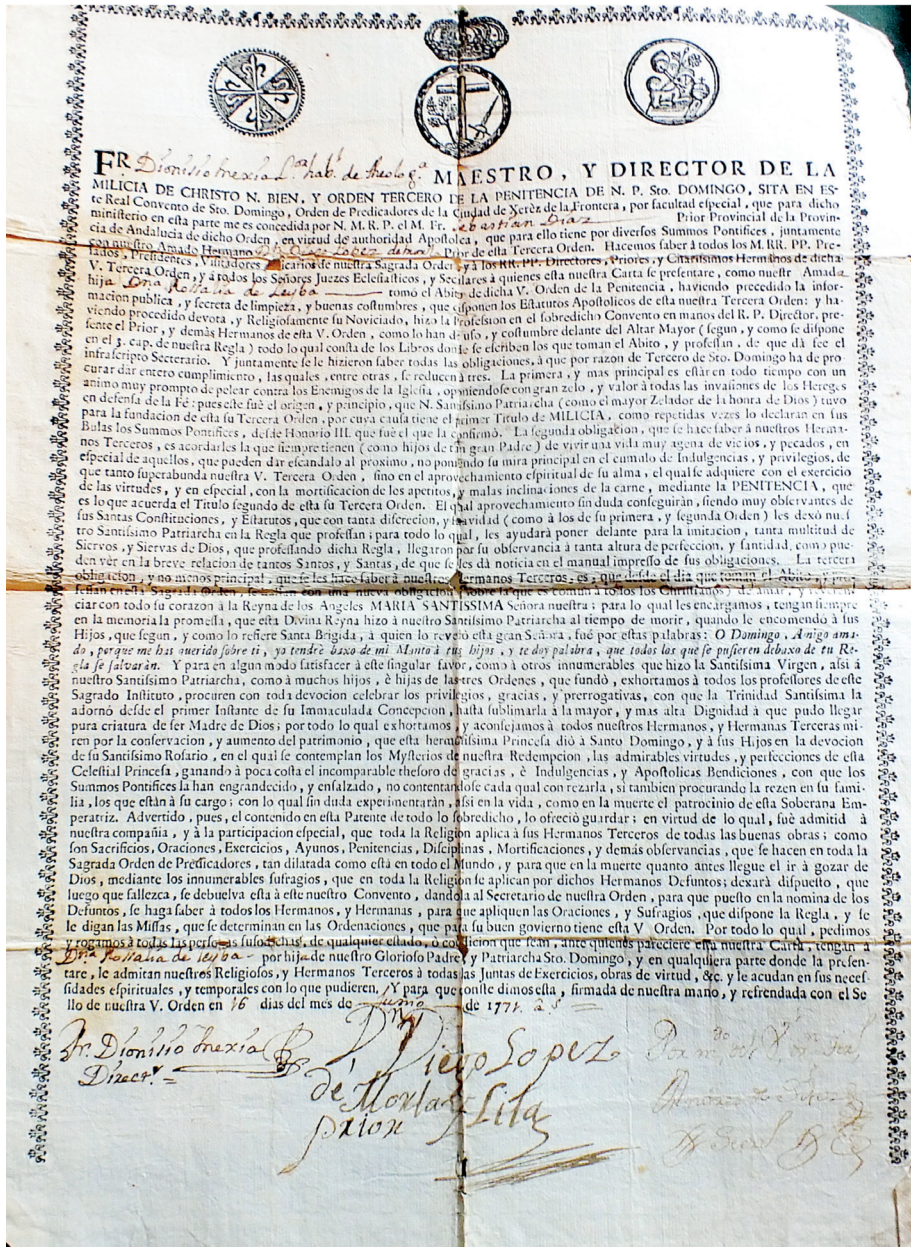 FR. Dionisio Mexia MAESTRO, Y DIRECTOR DE LA
MILICIA DE CHRISTO N. BIEN, Y ORDEN TERCERO DE LA PENITENCIA DE N. P. Sto. DOMINGO, SITA EN ES-
te Real Convento de Sto. Domingo, Orden de Predicadores de la Ciudad de Xerèz de la Frontera, por facultad especial, que para dicho
ministerio en esta parte me es concedida por N. M. R. P. el M. Fr. Sebastian Diaz Prior Provincial de la Provin-
cia de Andalucia de dicho Orden, en virtud de authoridad Apostolica, que para ello tiene por diversos Summos Pontifices, juntamente
con nuestro Amado Hermano Dn. Diego Lopez de Prior de esta Tercera Orden. Hacemos saber à todos los M. RR. PP. Pre-
lados, Presidentes, Visitadores, Vicarios de nuestra Sagrada Orden, y à los RR. PP. Directores, Priores, y Charissimos Hermanos de dicha
V. Tercera Orden, y à todos los Señores Juezes Eclesiasticos, y Seculares à quienes esta nuestra Carta se presentare, como nuestr Amada
hija Dna Rosalia de Leyba tomó el Abito de dicha V. Orden de la Penitencia, haviendo precedido la infor-
macion publica, y secreta de limpieza, y buenas costumbres, que disponen los Estatutos Apostolicos de esta nuestra Tercera Orden: y ha-
viendo procedido devota, y Religiosamente su Noviciado, hizo la Profession en el sobredicho Convento en manos del R. P. Director, pre-
sente el Prior, y demàs Hermanos de esta V. Orden, como lo han de uso, y costumbre delante del Altar Mayor (segun, y como se dispone
en el 3. cap. de nuestra Regla) todo lo qual consta de los Libros donde se escriben los que toman el Abito, y professan, de que dà fee el
infrascripto Secretario. Y juntamente se le hizieron saber todas las obligaciones, à que por razon de Tercero de Sto. Domingo ha de pro-
curar dàr entero cumplimiento, las quales, entre otras, se reducen à tres. La primera, y mas principal es estàr en todo tiempo con un
animo muy prompto de pelear contra los Enemigos de la Iglesia, oponiendose con gran zelo, y valor à todas las invasiones de los Hereges
en defensa de la Fé: pues este fuè el origen, y principio, que N. Santissimo Patriarcha (como el mayor Zelador de la honra de Dios) tuvo
para la fundacion de esta su Tercera Orden, por cuya causa tiene el primer Titulo de MILICIA, como repetidas vezes lo declaran en sus
Bulas los Summos Pontifices, desde Honorio III. que fuè el que la confirmò. La segunda obligacion, que se hace saber à nuestros Herma-
nos Terceros, es acordarles la que siempre tienen (como hijos de tan gran Padre) de vivir una vida muy agena de vicios, y pecados, en
especial de aquellos, que pueden dar escandalo al proximo, no poniendo su mira principal en el cumulo de Indulgencias, y privilegios, de
que tanto superabunda nuestra V. Tercera Orden, sino en el aprovechamiento espiritual de su alma, el qual se adquiere con el exercicio
de las virtudes, y en especial, con la mortificacion de los apetitos, y malas inclinaciones de la carne, mediante la PENITENCIA, que
es lo que acuerda el Titulo segundo de esta su Tercera Orden. El qual aprovechamiento sin duda conseguirán, siendo muy observantes de
sus Santas Constituciones, y Estatutos, que con tanta discrecion, y suavidad (como à los de su primera, y segunda Orden) les dexó nues-
tro Santissimo Patriarcha en la Regla que professan; para todo lo qual, les ayudará poner delante para la imitacion, tanta multitud de
Siervos, y Siervas de Dios, que professando dicha Regla, llegaron por su observancia à tanta altura de perfeccion, y santidad, como pue-
den vér en la breve relacion de tantos Santos, y Santas, de que se les dà noticia en el manual impresso de sus obligaciones. La tercera
obligacion, y no menos principal, que se les hace saber à nuestros Hermanos Terceros, es, que desde el dia que toman el Abito, y pro-
fessan en esta Sagrada Orden, se hallan con una nueva obligacion (sobre la que es comun à todos los Christianos) de amar, y reveren-
ciar con todo su corazon à la Reyna de los Angeles MARIA SANTISSIMA Señora nuestra; para lo qual les encargamos, tengan siempre
en la memoria la promessa, que esta Divina Reyna hizo à nuestro Santissimo Patriarcha al tiempo de morir, quando le encomendò à sus
Hijos, que segun, y como lo refiere Santa Brigida, à quien lo revelò esta gran Señora, fuè por estas palabras: O Domingo, Amigo ama-
do, porque me has querido sobre ti, yo tendrè baxo de mi Manto à tus hijos, y te doy palabra, que todos los que se pusieren debaxo de tu Re-
gla se salvaràn. Y para en algun modo satisfacer à este singular favor, como à otros innumerables que hizo la Santissima Virgen, assi à
nuestro Santissimo Patriarcha, como à muchos hijos, è hijas de las tres Ordenes, que fundò, exhortamos à todos los professores de este
Sagrado Instituto, procuren con toda devocion celebrar los privilegios, gracias, y prerrogativas, con que la Trinidad Santissima la
adornó desde el primer Instante de su Immaculada Concepcion, hasta sublimarla à la mayor, y mas alta Dignidad à que pudo llegar
pura criatura de ser Madre de Dios; por todo lo qual exhortamos, y aconsejamos à todos nuestros Hermanos, y Hermanas Terceras mi-
ren por la conservacion, y aumento del patrimonio, que esta hermosissima Princesa diò à Santo Domingo, y à sus Hijos en la devocion
de su Santissimo Rosario, en el qual se contemplan los Mysterios de nuestra Redempcion, las admirables virtudes, y perfecciones de esta
Celestial Princesa, ganando à poca costa el incomparable thesoro de gracias, è Indulgencias, y Apostolicas Bendiciones, con que los
Summos Pontifices la han engrandecido, y ensalzado, no contentandose cada qual con rezarla, si tambien procurando la rezen en su fami-
lia, los que estàn à su cargo; con lo qual sin duda experimentaràn, assi en la vida, como en la muerte el patrocinio de esta Soberana Em-
peratriz. Advertido, pues, el contenido en esta Patente de todo lo sobredicho, lo ofreciò guardar; en virtud de lo qual, fuè admitid à
nuestra compañia, y à la participacion especial, que toda la Religion aplica à sus Hermanos Terceros de todas las buenas obras; como
son Sacrificios, Oraciones, Exercicios, Ayunos, Penitencias, Disciplinas, Mortificaciones, y demàs observancias, que se hacen en toda la
Sagrada Orden de Predicadores, tan dilatada como està en todo el Mundo, y para que en la muerte quanto antes llegue el ir à gozar de
Dios, mediante los innumerables sufragios, que en toda la Religion se aplican por dichos Hermanos Defuntos; dexará dispuesto, que
luego que fallezca, se debuelva esta à este nuestro Convento, dandola al Secretario de nuestra Orden, para que puesto en la nomina de los
Defuntos, se haga saber à todos los Hermanos, y Hermanas, para que apliquen las Oraciones, y Sufragios, que dispone la Regla, y se
le digan las Missas, que se determinan en las Ordenaciones, que para su buen govierno tiene esta V Orden. Por todo lo qual, pedimos
y rogamos à todas las personas susodichas, de qualquier estado, ò condicion que sean, ante quienes pareciere esta nuestra Carta, tengan à
Dna Rosalia de Leyba por hija de nuestro Glorioso Padre, y Patriarcha Sto. Domingo, y en qualquiera parte donde la presen-
tare, le admitan nuestros Religiosos, y Hermanos Terceros à todas las Juntas de Exercicios, obras de virtud, &c. y le acudan en sus neces-
sidades espirituales, y temporales con lo que pudieren. Y para que conste dimos esta, firmada de nuestra mano, y refrendada con el Se-
llo de nuestra V. Orden en 16 dias del mes de Junio de 177
Fr. Dionisio Mexia
Directr.
Dn. Diego Lopez
de Morla
Prior